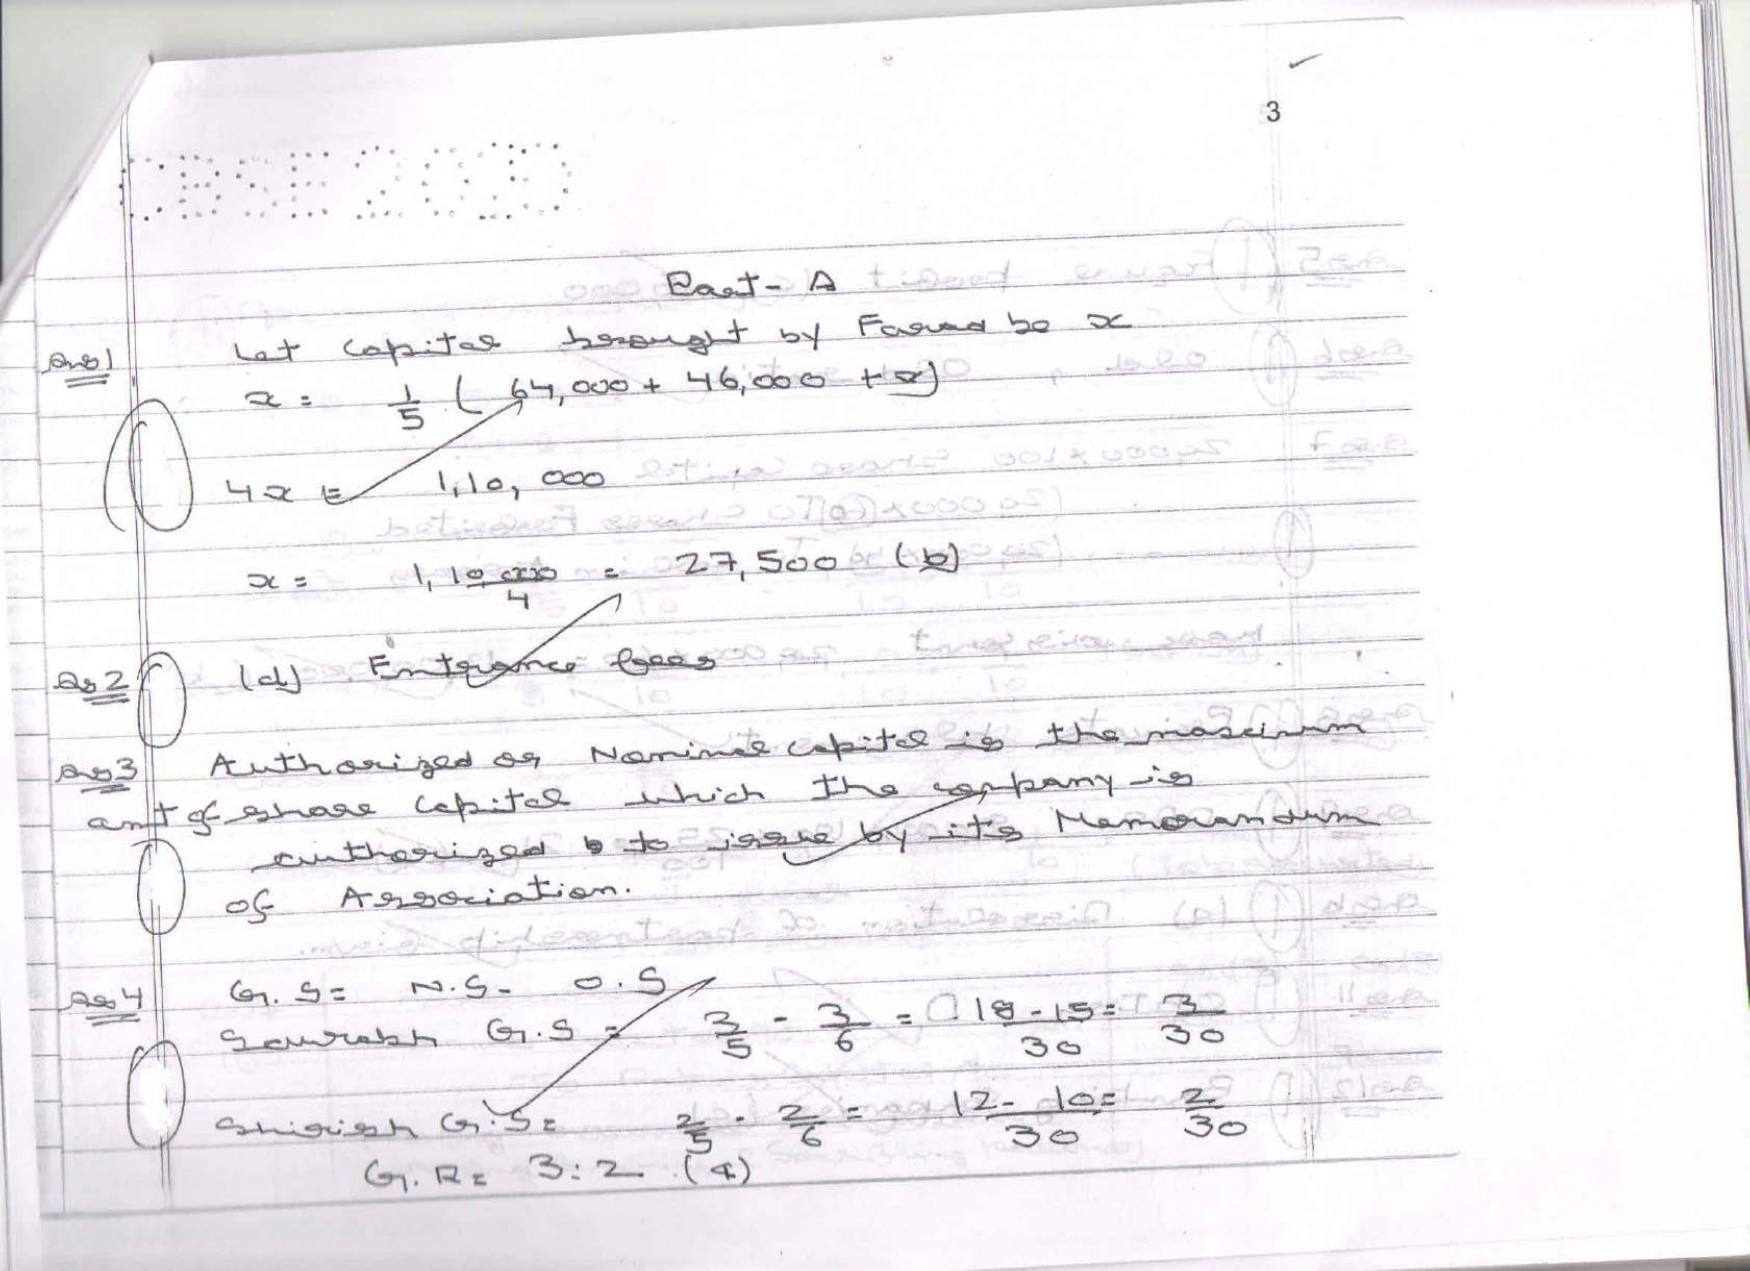 3
CBSE 2020
Part - A
Ans 1 Let capital brought by Farad be x
x = 1/5 ( 64,000 + 46,000 + x)
4x = 1,10,000
x = 1,10,000/4 = 27,500 (b)
Ans 2 (d) Entrance fees
Ans 3 Authorized or Nominal capital is the maximum
amt of share capital which the company is
authorized to issue by its Memorandum
of Association.
Ans 4 G.S = N.S - O.S
Saurabh G.S = 3/5 - 3/6 = 18-15/30 = 3/30
Shirish G.S = 2/5 - 2/6 = 12-10/30 = 2/30
G.R = 3:2.